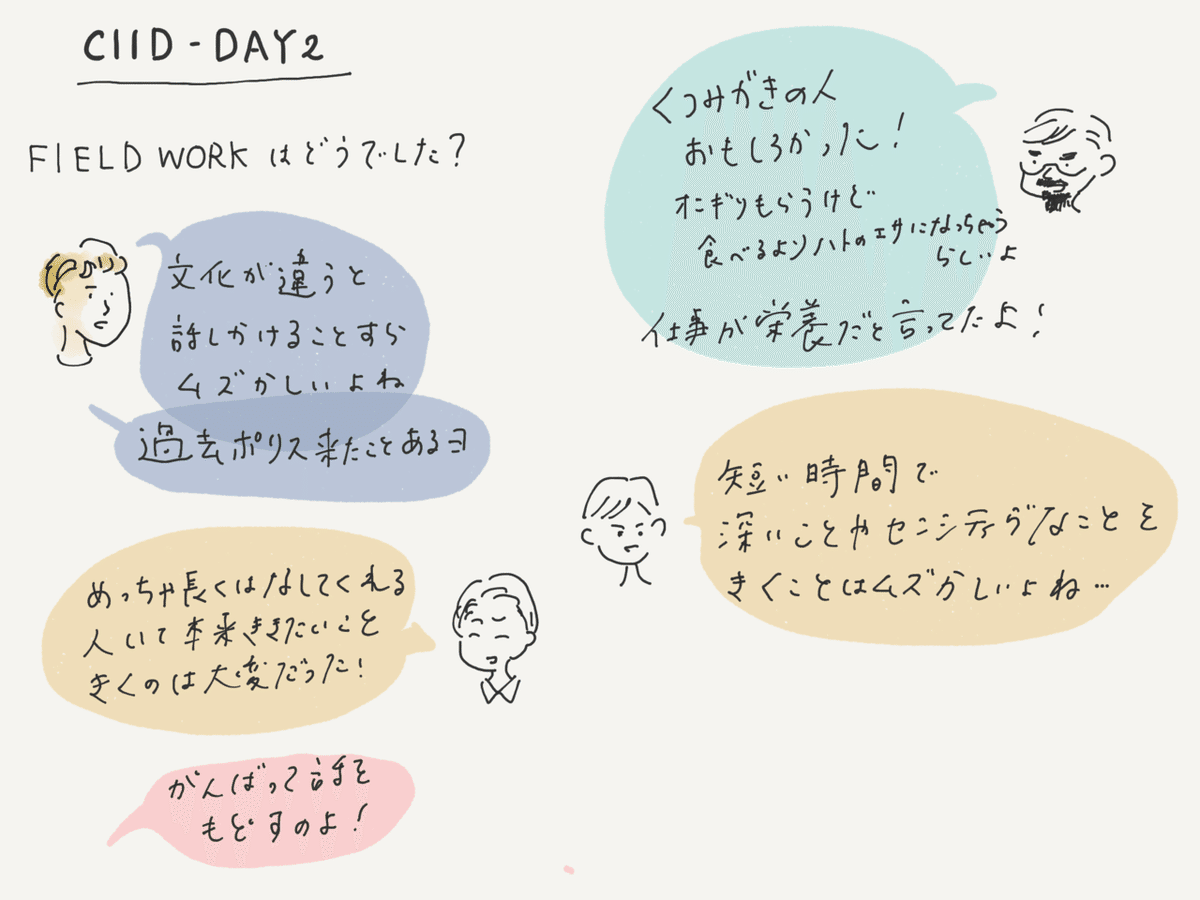 CIID - DAY2
FIELD WORK はどうでした？
文化が違うと
話しかけることすら
ムズかしいよね
過去ポリス来たことあるヨ
めっちゃ長くはなしてくれる
人いて本来ききたいこと
きくのは大変だった！
がんばって話を
もどすのよ！
くつみがきの人
おもしろかった！
オニギリもらうけど
食べるよりハトのエサになっちゃう
らしいよ
仕事が栄養だと言ってたよ！
短い時間で
深いことやセンシティブなことを
きくことはムズかしいよね…